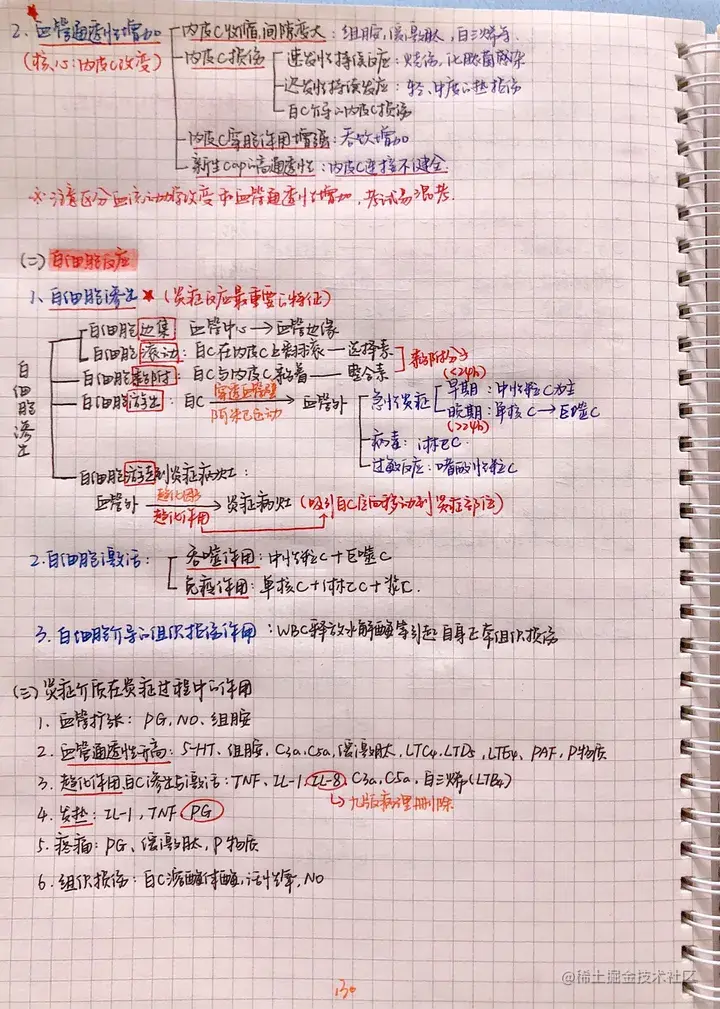 2. 血管通透性增加 内皮C收缩,间隙变大:组胺,缓激肽,白三烯等
(核心:内皮C改变) 内皮C损伤 速发性持续反应:烧伤,化脓菌感染
迟发性持续反应:轻、中度的热损伤
白C介导的内皮C损伤
内皮C穿胞作用增强:吞饮增加
新生cap的高通透性:内皮C连接不健全
※注意区分血流动力学改变和血管通透性增加,考试易混考.
(二) 白细胞反应
1、白细胞渗出 ★ (炎症反应最重要的特征)
白细胞渗出
白细胞边集 血管中心→血管边缘
白细胞滚动:白C在内皮C上翻滚—选择素
白细胞黏附:白C与内皮C黏着——整合素
黏附分子
白细胞游出:白C 穿透血管壁 阿米巴运动 → 血管外
急性炎症 (<24h) 早期:中性粒C为主
(>24h) 晚期:单核C→巨噬C
病毒:淋巴C
过敏反应:嗜酸性粒C
白细胞游走到炎症病灶:
血管外 趋化因子 趋化作用 → 炎症病灶 (吸引白C定向移动到炎症部位)
2.白细胞激活: 吞噬作用:中性粒C+巨噬C
免疫作用:单核C+淋巴C+浆C.
3. 白细胞介导的组织损伤作用:WBC释放水解酶等引起自身正常组织损伤
(三) 炎症介质在炎症过程中的作用
1. 血管扩张:PG,NO、组胺
2. 血管通透性升高:5-HT、组胺,C3a,C5a,缓激肽,LTC4,LTD5,LTE4,PAF,P物质
3. 趋化作用,白C渗出与激活:TNF、IL-1,IL-8,C3a,C5a,白三烯(LTB4)
↳九版病理删除
4. 发热:IL-1,TNF PG
5. 疼痛:PG、缓激肽,P物质
6. 组织损伤:白C溶酶体酶,活性氧,NO
130
@稀土掘金技术社区